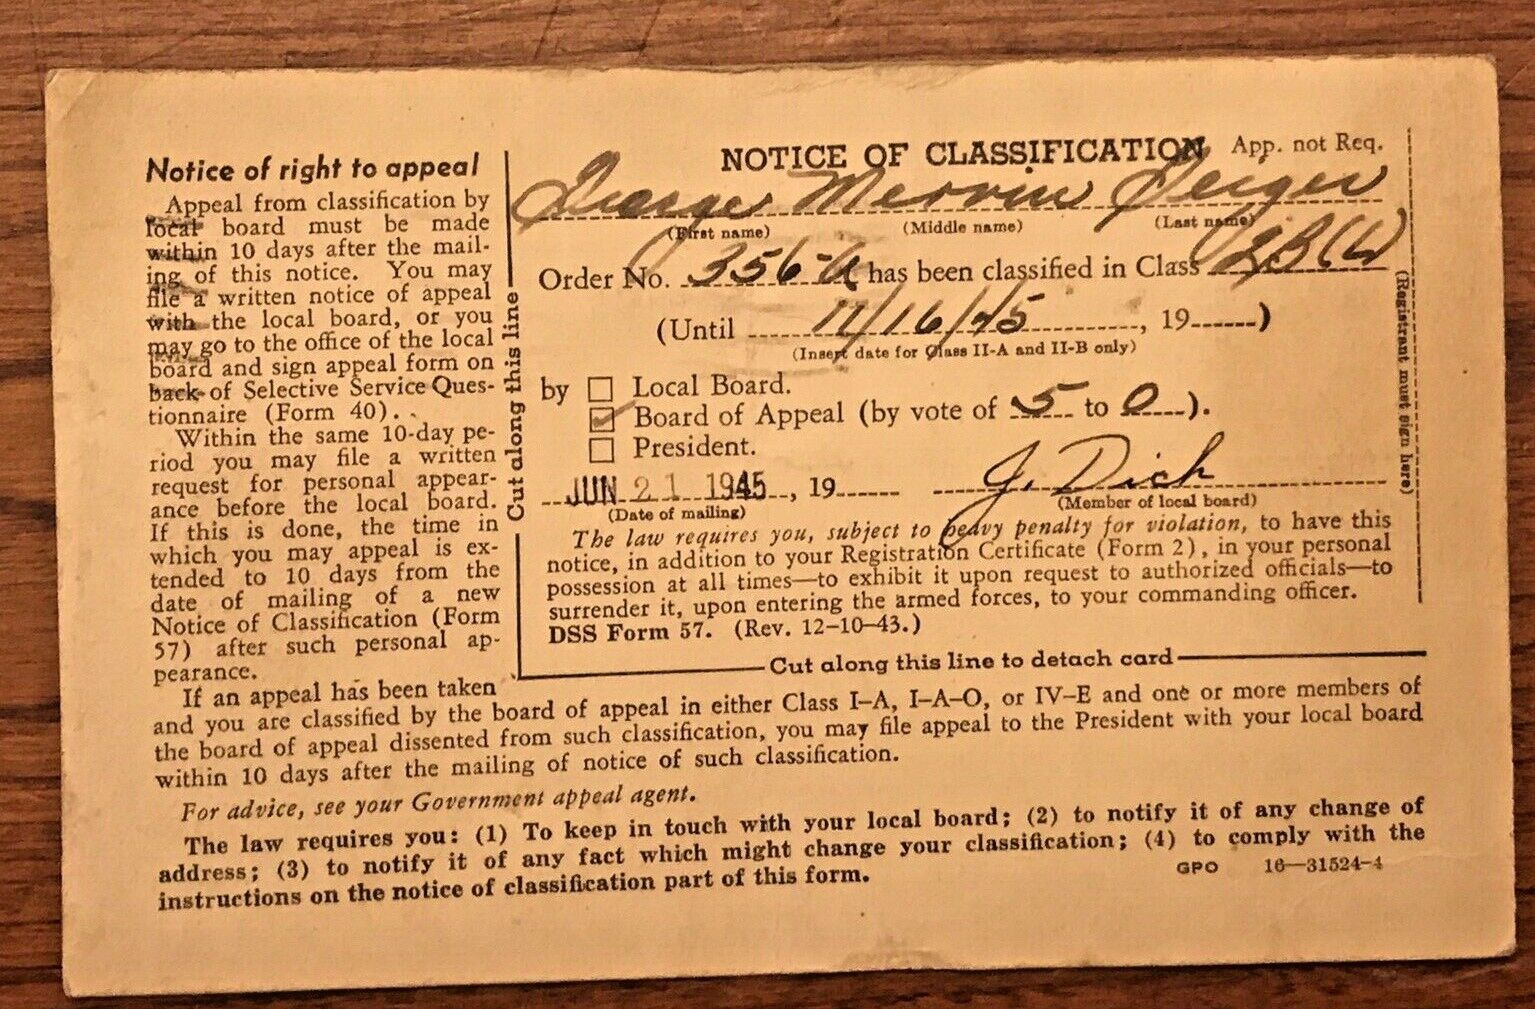 Notice of right to appeal
Appeal from classification by
local board must be made
within 10 days after the mail-
ing of this notice. You may
file a written notice of appeal
with the local board, or you
may go to the office of the local
board and sign appeal form on
back of Selective Service Ques-
tionnaire (Form 40).
Within the same 10-day pe-
riod you may file a written
request for personal appear-
ance before the local board.
If this is done, the time in
which you may appeal is ex-
tended to 10 days from the
date of mailing of a new
Notice of Classification (Form
57) after such personal ap-
pearance.
If an appeal has been taken
and you are classified by the board of appeal in either Class I–A, I–A–O, or IV–E and one or more members of
the board of appeal dissented from such classification, you may file appeal to the President with your local board
within 10 days after the mailing of notice of such classification.
For advice, see your Government appeal agent.
The law requires you: (1) To keep in touch with your local board; (2) to notify it of any change of
address; (3) to notify it of any fact which might change your classification; (4) to comply with the
instructions on the notice of classification part of this form.
GPO 16—31524-4
Cut along this line
NOTICE OF CLASSIFICATION App. not Req.
George Mervin Geiger
(First name) (Middle name) (Last name)
Order No. 356-A has been classified in Class 2B(L)
(Until 11/16/45, 19)
(Insert date for Class II-A and II-B only)
by Local Board.
Board of Appeal (by vote of 5 to 0).
President.
JUN 21 1945, 19 J. Dich
(Date of mailing) (Member of local board)
The law requires you, subject to heavy penalty for violation, to have this
notice, in addition to your Registration Certificate (Form 2), in your personal
possession at all times—to exhibit it upon request to authorized officials—to
surrender it, upon entering the armed forces, to your commanding officer.
DSS Form 57. (Rev. 12–10–43.)
Cut along this line to detach card
(Registrant must sign here)